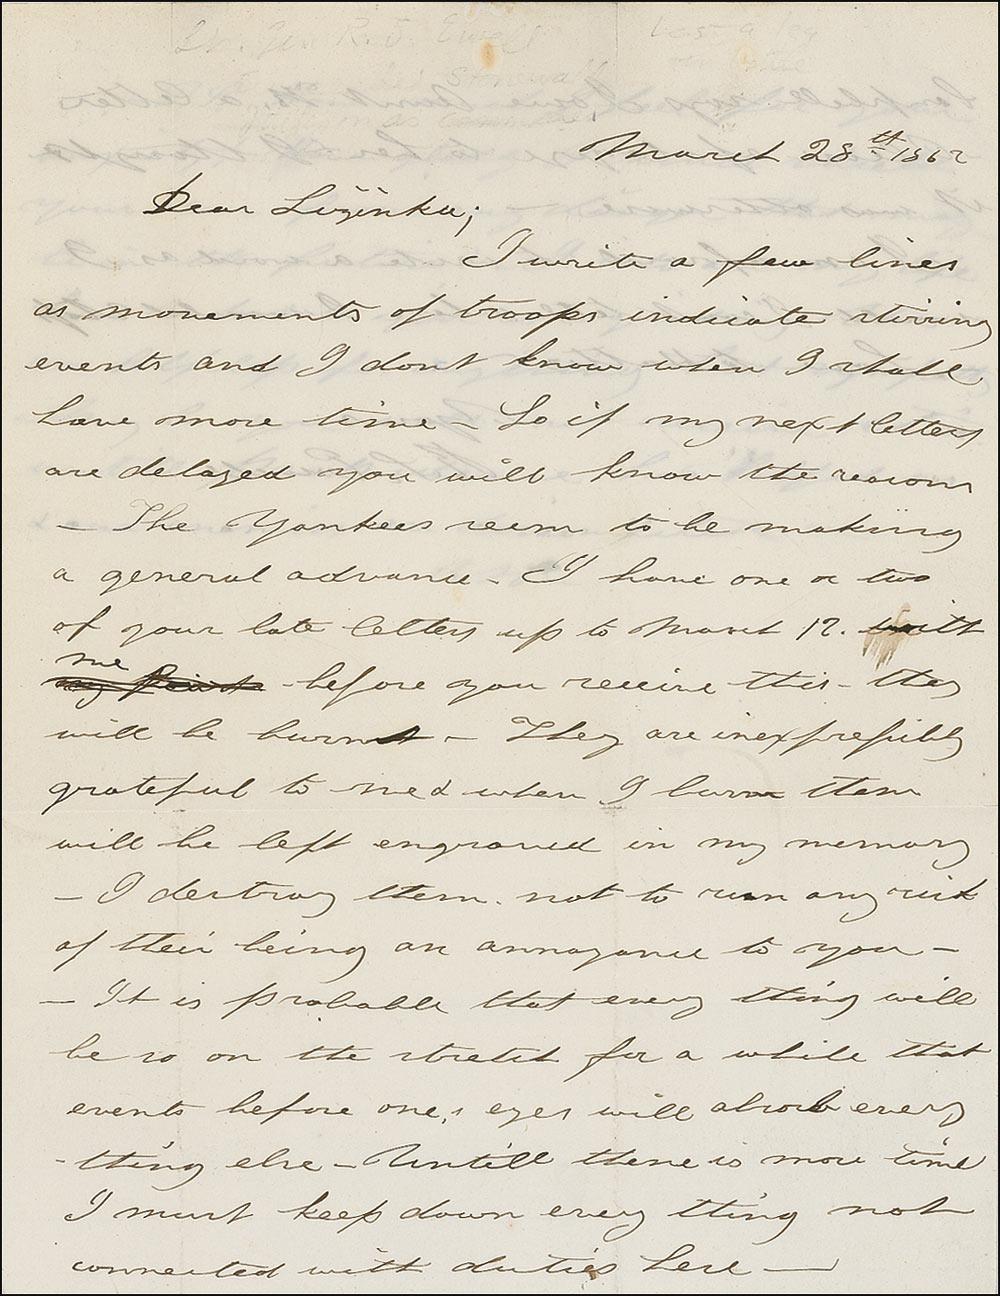 Lt. Gen R. S. Ewell
Lost a leg
Stonewall
March 28th 1862
Dear Lizinka;
I write a few lines
as movements of troops indicate stirring
events and I dont know when I shall
have more time – So if my next letters
are delayed you will know the reason
– The Yankees seem to be making
a general advance – I have one or two
of your late letters up to March 17. with
me
before you receive this – they
will be burnt – They are inexpressibly
grateful to me & when I burn them
will be left engraved in my memory
– I destroy them not to run any risk
of their being an annoyance to you –
– It is probable that every thing will
be so on the stretch for a while that
events before one,s eyes will absorb every
-thing else – Untill there is more time
I must keep down every thing not
connected with duties here –